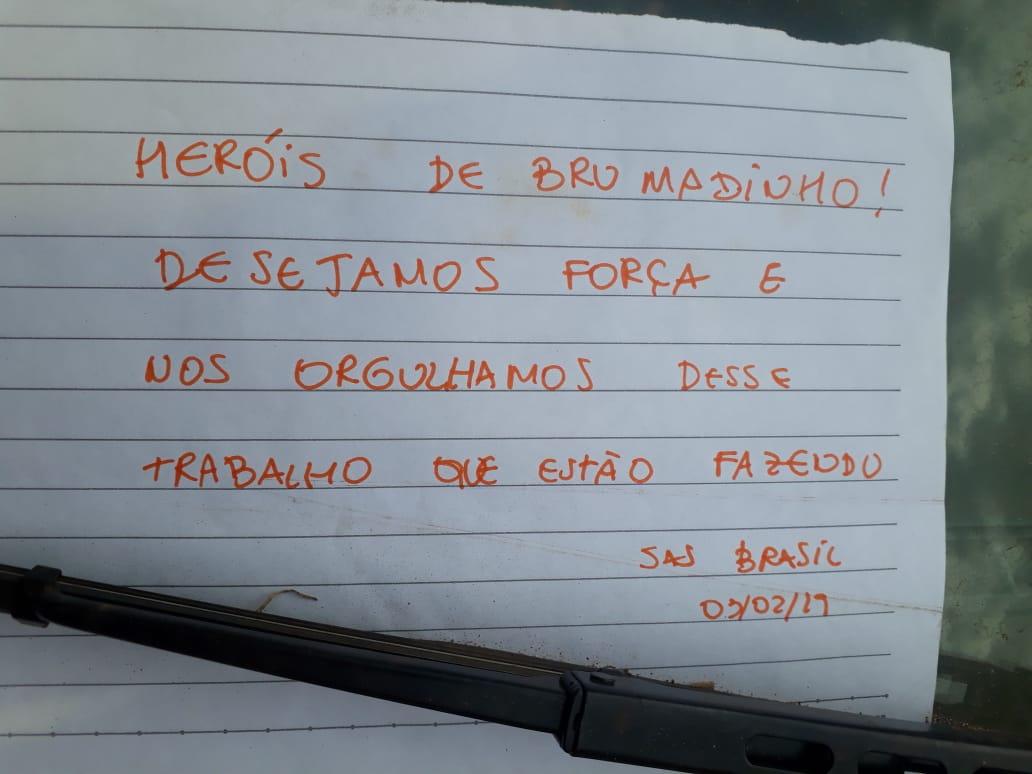 HERÓIS DE BRUMADINHO!
DESEJAMOS FORÇA E
NOS ORGULHAMOS DESSE
TRABALHO QUE ESTÃO FAZENDO
SAS BRASIL
03/02/19